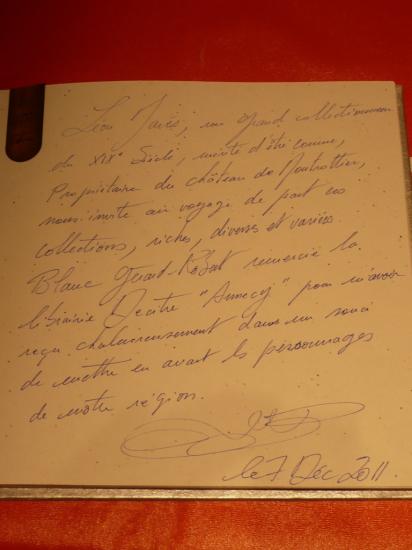 Léon Marès, un grand collectionneur
du XIXe Siècle, mérite d'être connu,
Propriétaire du château de Montrottier,
nous invite au voyage de part ces
collections, riches, diverses et variées
Blanc Gérard-Robert remercie la
librairie Decitre "Annecy" pour m'avoir
reçu chaleureusement dans un souci
de mettre en avant les personnages
de notre région.
le 7 Déc 2011